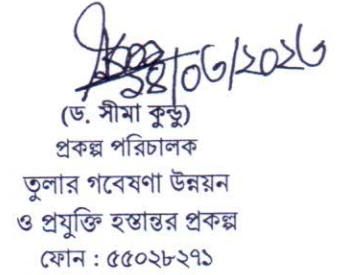 ১৪/০৩/২০২৩
(ড. সীমা কুন্ডু)
প্রকল্প পরিচালক
তুলার গবেষণা উন্নয়ন
ও প্রযুক্তি হস্তান্তর প্রকল্প
ফোন : ৫৫০২৮২৭১